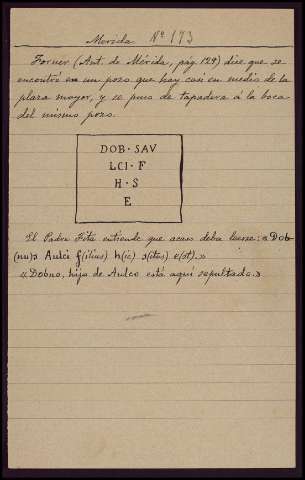 Merida Nº 193
Forner (Ant. de Mérida, pág 129) dice que se
encontró en un pozo que hay casi en medio de la
plaza mayor, y se puso de tapadera á la boca
del mismo pozo.
DOB · SAV
LCI · F
H · S
E
El Padre Fita entiende que acaso deba leerse: «Dob-
(nu)s Aulci f(ilius) h(ic) s(itus) e(st).»
«Dobno, hijo de Aulco está aquí sepultado.»